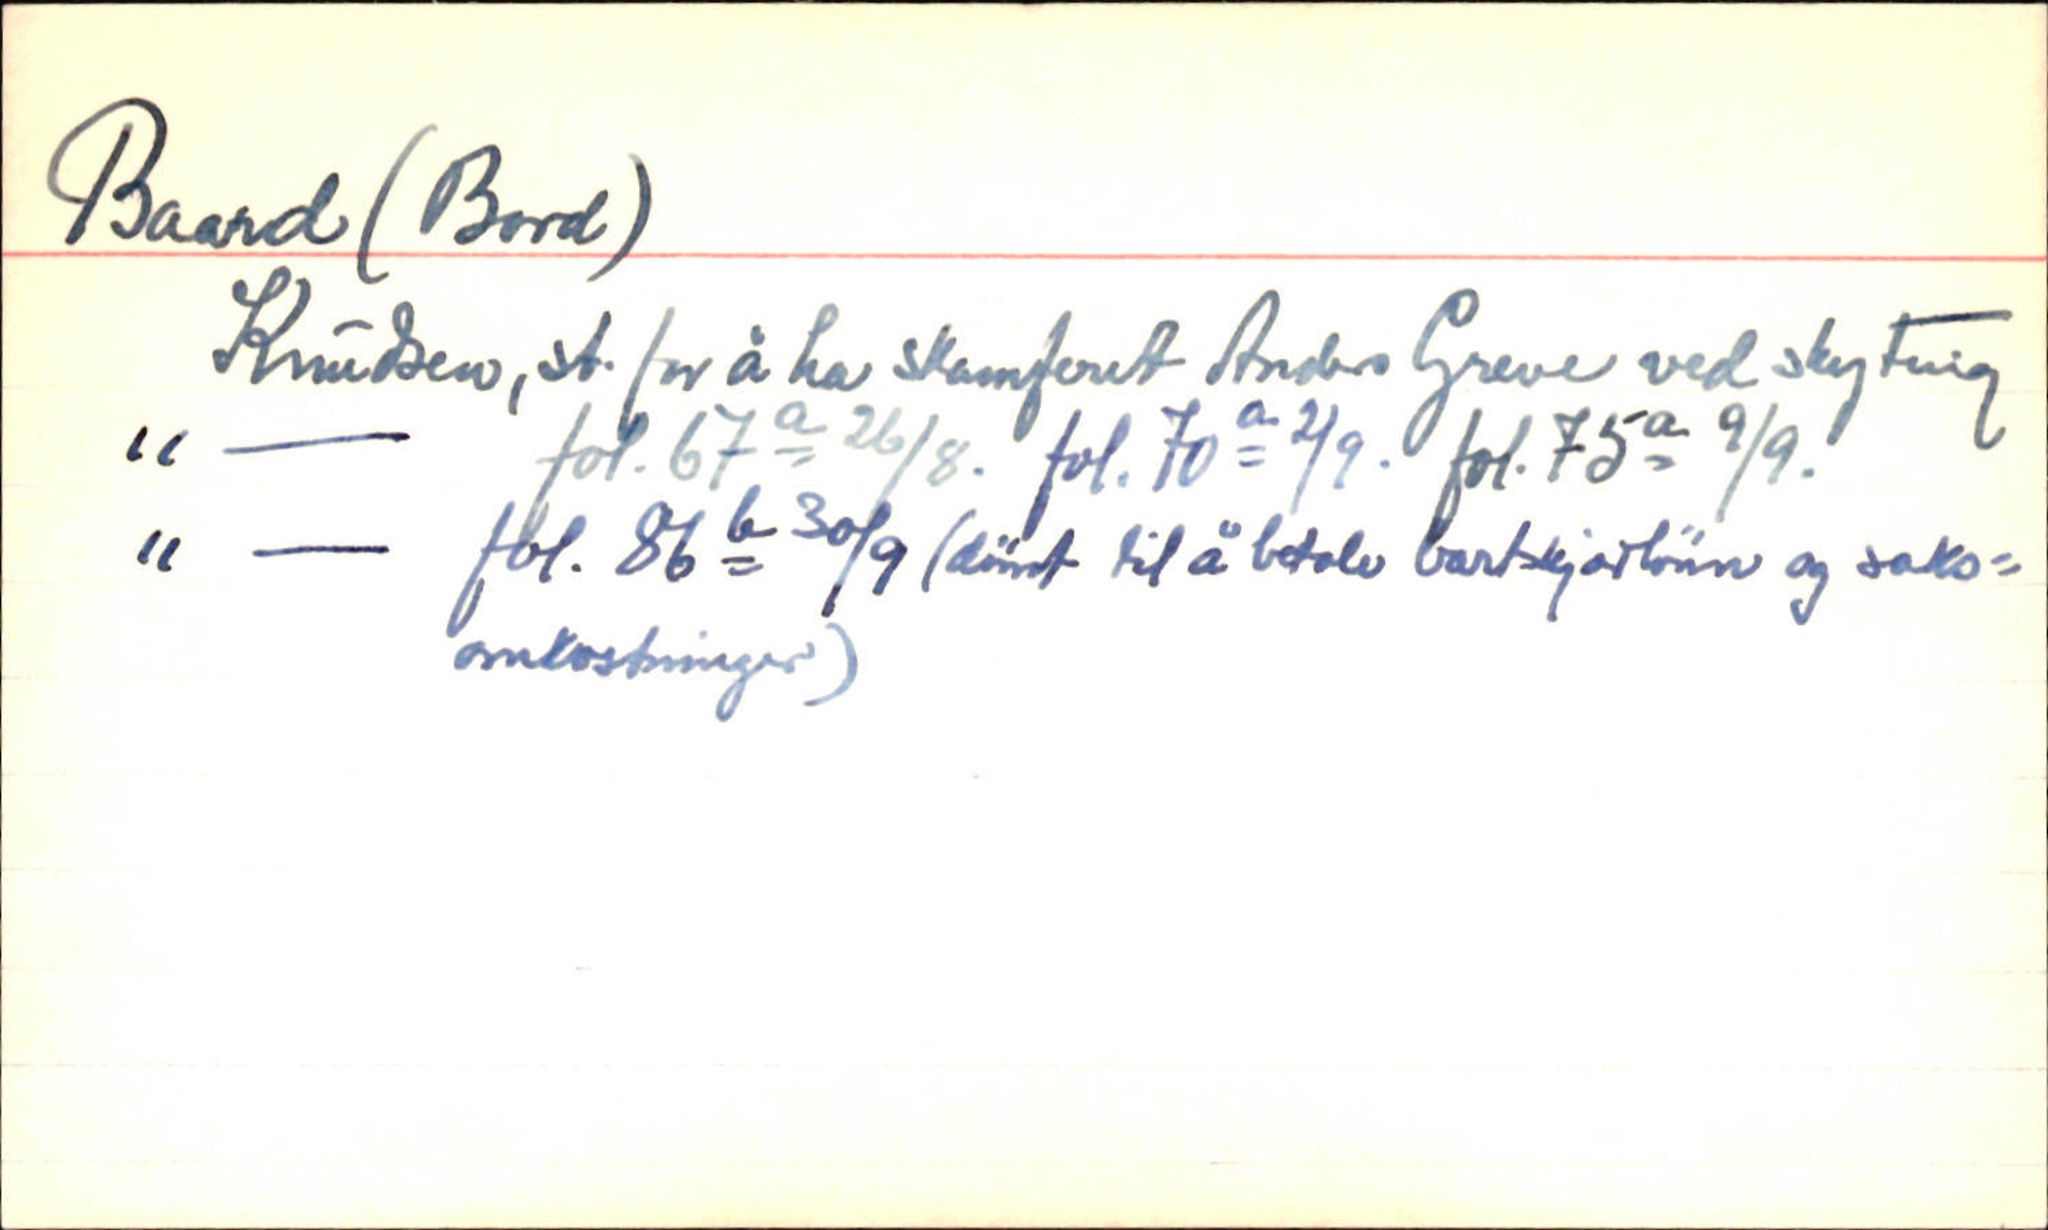 Baard (Bord)
Knudsen, st. for å ha skamferet Anders Greve ved skytning
" — fol. 67a 26/8. fol. 70a 2/9. fol. 75a 9/9.
" — fol. 86b 30/9 (dömt til å betale bartskjærlönn og saks=
omkostninger)